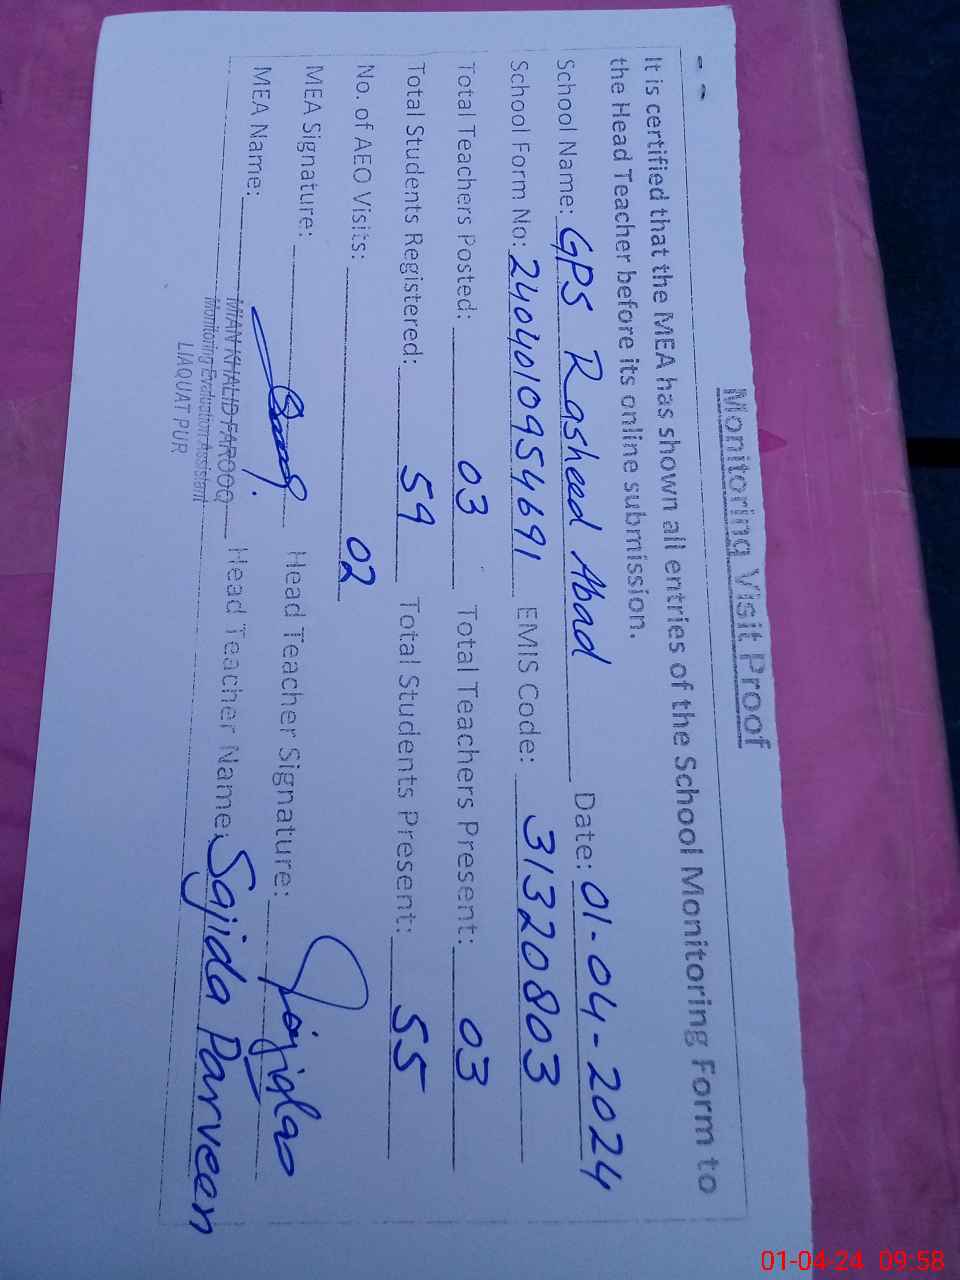 Monitoring Visit Proof
It is certified that the MEA has shown all entries of the School Monitoring Form to
the Head Teacher before its online submission.
School Name: GPS Rasheed Abad Date: 01-04-2024
School Form No: 2404010954691 EMIS Code: 31320803
Total Teachers Posted: 03 Total Teachers Present: 03
Total Students Registered: 59 Total Students Present: 55
No. of AEO Visits: 02
MEA Signature: Head Teacher Signature:
MEA Name: MIAN KHALID FAROOQ Head Teacher Name: Sajida Parveen
Monitoring Evaluation Assistant
LIAQUAT PUR
01-04-24 09:58